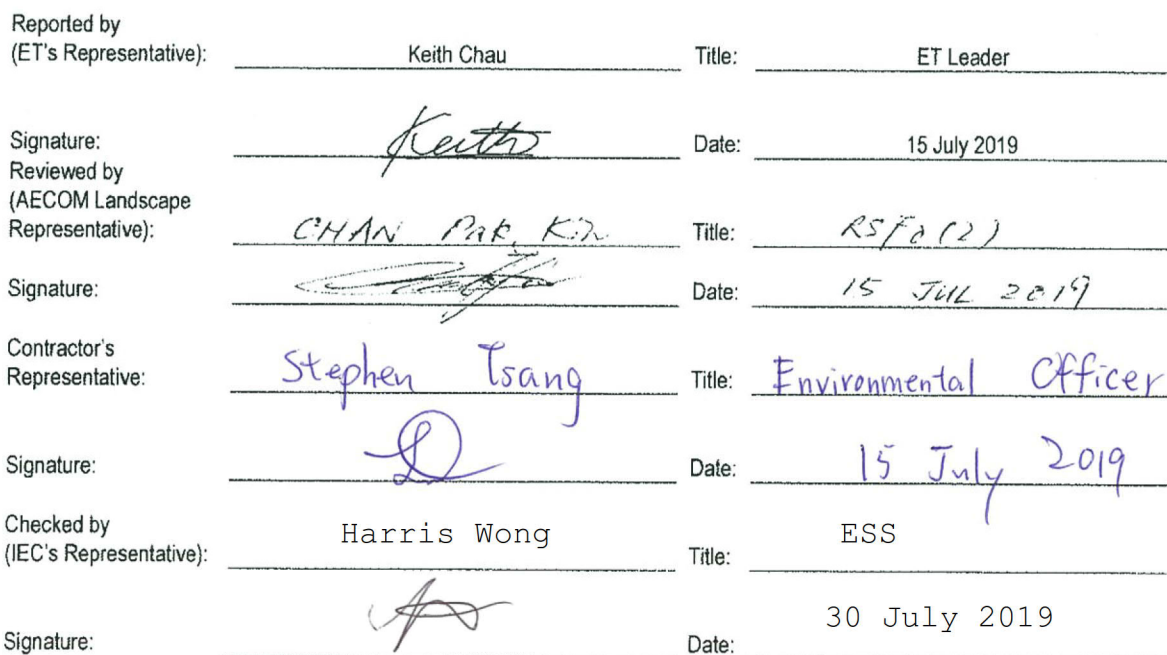 Reported by
(ET's Representative): Keith Chau Title: ET Leader
Signature: Keith Date: 15 July 2019
Reviewed by
(AECOM Landscape
Representative): CHAN Pak Kin Title:
Signature: Date: 15 JUL 2019
Contractor's
Representative: Stephen Tsang Title: Environmental Officer
Signature: Date: 15 July 2019
Checked by
(IEC's Representative): Harris Wong Title: ESS
Signature: Date: 30 July 2019